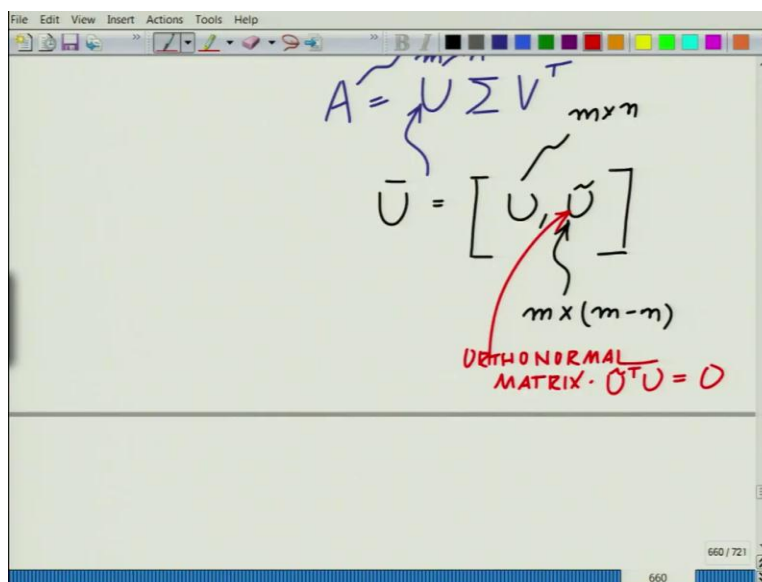 File Edit View Insert Actions Tools Help
B I
A = U Σ Vᵀ
m×n
Ū = [ U, Ũ ]
m×(m-n)
ORTHONORMAL
MATRIX. ŨᵀU = 0
660 / 721
660